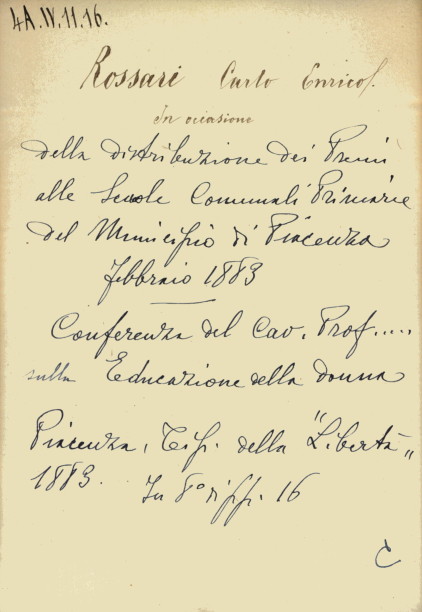 4A.IV.11.16.
Rossari Carlo Enrico.
In occasione
della distribuzione dei Premi
alle Scuole Comunali Primarie
del Municipio di Piacenza
febbraio 1883
Conferenza del Cav. Prof.....
sulla Educazione della donna
Piacenza, Tip. della "Libertà"
1883. In 8° di pp. 16
C